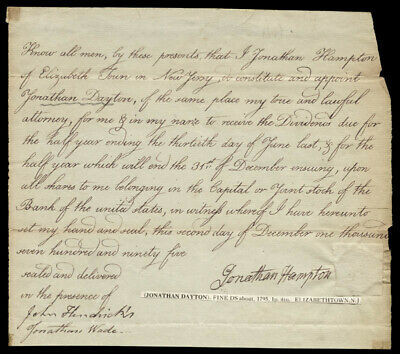 Know all men, by these presents that I Jonathan Hampton
of Elizabeth Town in New Jersy, do constitute and appoint
Jonathan Dayton, of the same place my true and lawful
attorney, for me & in my name to receive the Dividends due for
the half year ending the thirtieth day of June last, & for the
half year which will end the 31st of December ensuing, upon
all shares to me belonging in the Capital or Joint stock of the
Bank of the united states, in witness where of I have hereunto
set my hand and seal, this second day of December one thousand
seven hundred and ninety five
sealed and delivered
in the presence of
Jonathan Hampton
(JONATHAN DAYTON). FINE DS about, 1795, 1p. 4to, ELIZABETHTOWN, N.J.
John Hendricks
Jonathan Wade